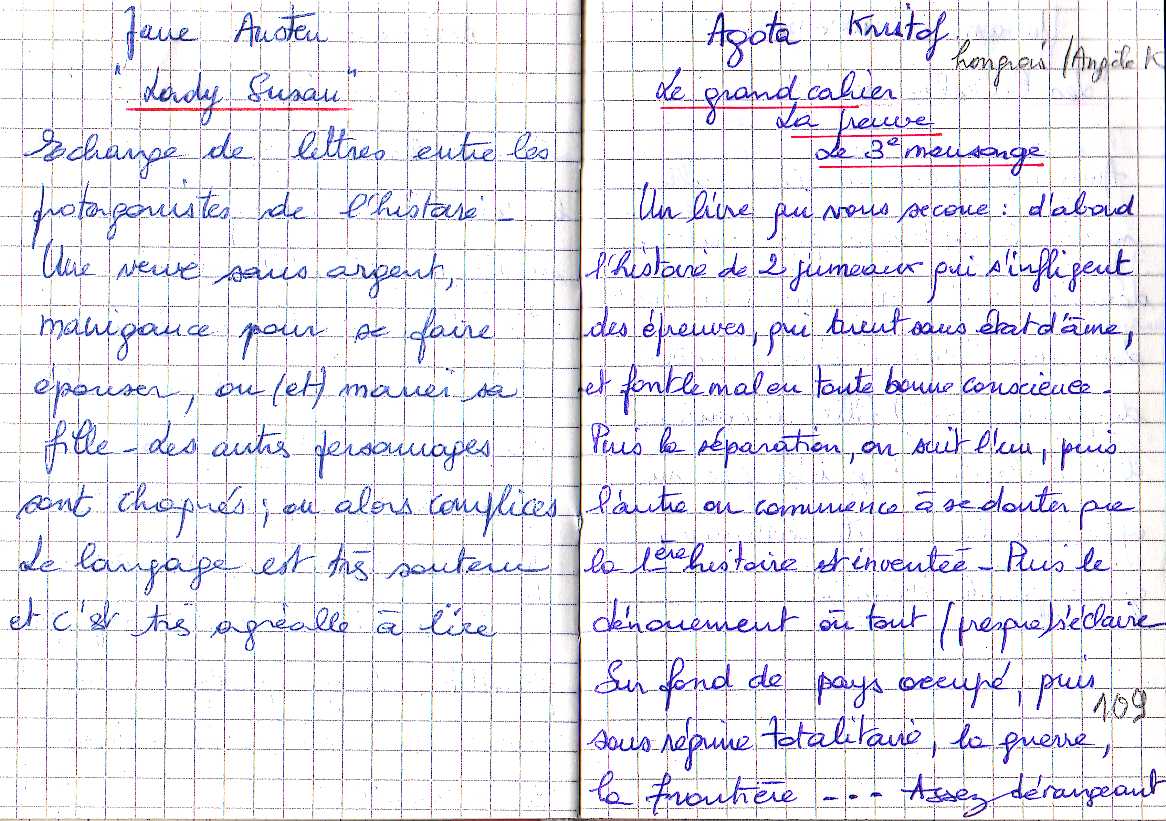 Jane Austen
"Lady Susan"
Echange de lettres entre les
protagonistes de l'histoire -
Une veuve sans argent,
manigance pour se faire
épouser, ou (et) marier sa
fille - Les autres personnages
sont choqués ; ou alors complices
Le langage est très soutenu
et c'est très agréable à lire
Agota Kristof
hongrois / Angèle K
Le grand cahier
La preuve
Le 3e mensonge
Un livre qui vous secoue : d'abord
l'histoire de 2 jumeaux qui s'infligent
des épreuves, qui tuent sans état d'âme,
et font le mal en toute bonne conscience -
Puis la séparation, on suit l'un, puis
l'autre on commence à se douter que
la 1ère histoire est inventée - Puis le
dénouement où tout (presque) s'éclaire
Sur fond de pays occupé, puis
109
sous régime totalitaire, la guerre,
la frontière --- Assez dérangeant